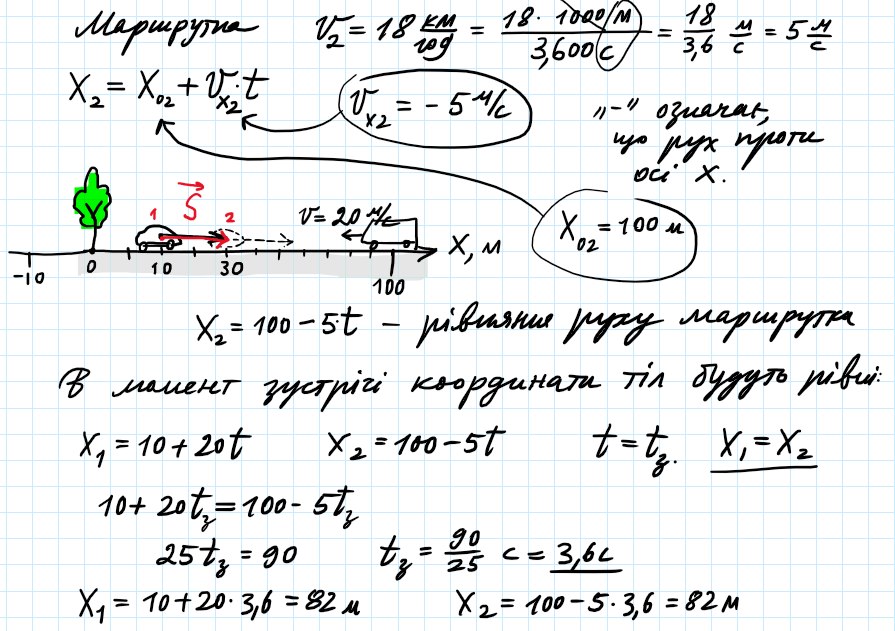 Маршрутка v₂ = 18 км/год = 18·1000 м / 3,600 с = 18/3,6 м/с = 5 м/с
X₂ = X₀₂ + vₓ₂·t
vₓ₂ = - 5 м/с
„-" означає,
що рух проти
осі X.
X₀₂ = 100 м
S⃗
1 2 v = 20 м/с
X, м
-10 0 10 30 100
X₂ = 100 - 5t - рівняння руху маршрутки
В момент зустрічі координати тіл будуть рівні:
X₁ = 10 + 20t X₂ = 100 - 5t t = t_з. X₁ = X₂
10 + 20t_з = 100 - 5t_з
25t_з = 90 t_з = 90/25 с = 3,6с
X₁ = 10 + 20·3,6 = 82 м X₂ = 100 - 5·3,6 = 82 м